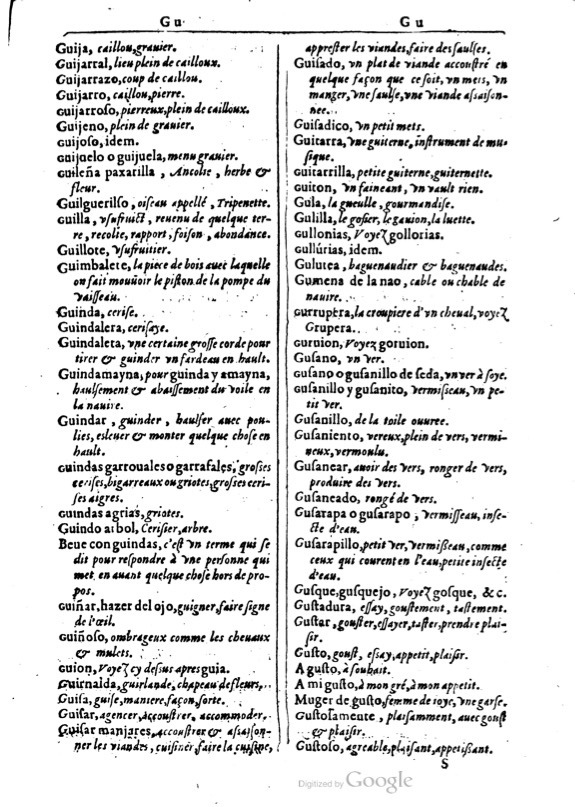 Gu
Gu
Guija, caillou, grauier.
Guijarral, lieu plein de cailloux.
Guijarrazo, coup de caillou.
Guijarro, caillou, pierre.
Guijarroso, pierreux, plein de cailloux.
Guijeno, plein de grauier.
Guijoso, idem.
Guijuelo o guijuela, menu grauier.
Guileña paxarilla, Ancolie, herbe &
fleur.
Guilguerillo, oiseau appellé, Tripenette.
Guilla, vsufruict, reuenu de quelque ter-
re, recolie, rapport, foison, abondance.
Guillote, vsufruitier.
Guimbalete, la piece de bois auec laquelle
on fait mouuoir le piston de la pompe du
vaisseau.
Guinda, cerise.
Guindalera, cerisaye.
Guindaleta, vne certaine grosse corde pour
tirer & guinder vn fardeau en hault.
Guindamayna, pour guinda y amayna,
haulsement & abaissement du voile en
la nauire.
Guindar, guinder, haulser auec pou-
lies, esleuer & monter quelque chose en
hault.
Guindas garrouales o garrafales, grosses
cerises, bigarreaux ou griotes, grosses ceri-
ses aigres.
Guindas agrias, griotes.
Guindo arbol, Cerisier, arbre.
Beue con guindas, c'est vn terme qui se
dit pour respondre à vne personne qui
met en auant quelque chose hors de pro-
pos.
Guiñar, hazer del ojo, guigner, faire signe
de l'œil.
Guiñoso, ombrageux comme les cheuaux
& mulets.
Guion, Voyez cy dessus apres guia.
Guirnalda, guirlande, chapeau de fleurs.
Guisa, guise, maniere, façon, sorte.
Guisar, agencer, accoustrer, accommoder.
Guisar manjares, accoustrer & assaison-
ner les viandes, cuisiner, faire la cuisine,
apprester les viandes, faire des saulses.
Guisado, vn plat de viande accoustré en
quelque façon que ce soit, vn mets, vn
manger, vne saulse, vne viande assaison-
nee.
Guisadico, vn petit mets.
Guitarra, vne guiterne, instrument de mu-
sique.
Guitarrilla, petite guiterne, guiternette.
Guiton, vn faineant, vn vault rien.
Gula, la gueulle, gourmandise.
Gulilla, le gosier, le gauion, la luette.
Gullonias, Voyez gollorias.
Gullúrias, idem.
Gulutea, baguenaudier & baguenaudes.
Gumena de la nao, cable ou chable de
nauire.
Gurrupera, la croupiere d'vn cheual, voyez
Grupera.
Guruion, Voyez goruion.
Gusano, vn ver.
Gusano o gusanillo de seda, vn ver à soye.
Gusanillo y gusanito, vermisseau, vn pe-
tit ver.
Gusanillo, de la toile ouuree.
Gusaniento, vereux, plein de vers, vermi-
neux, vermoulu.
Gusanear, auoir des vers, ronger de vers,
produire des vers.
Gusaneado, rongé de vers.
Gusarapa o gusarapo, vermisseau, inse-
cte d'eau.
Gusarapillo, petit ver, vermisseau, comme
ceux qui courent en l'eau, petite insecte
d'eau.
Gusque, gusquejo, Voyez gosque, & c.
Gustadura, essay, goustement, tastement.
Gustar, gouster, essayer, taster, prendre plai-
sir.
Gusto, goust, essay, appetit, plaisir.
A gusto, à souhait.
A mi gusto, à mon gré, à mon appetit.
Muger de gusto, femme de ioye, vne garse.
Gustosamente, plaisamment, auec goust
& plaisir.
Gustoso, agreable, plaisant, appetissant.
S
Digitized by Google